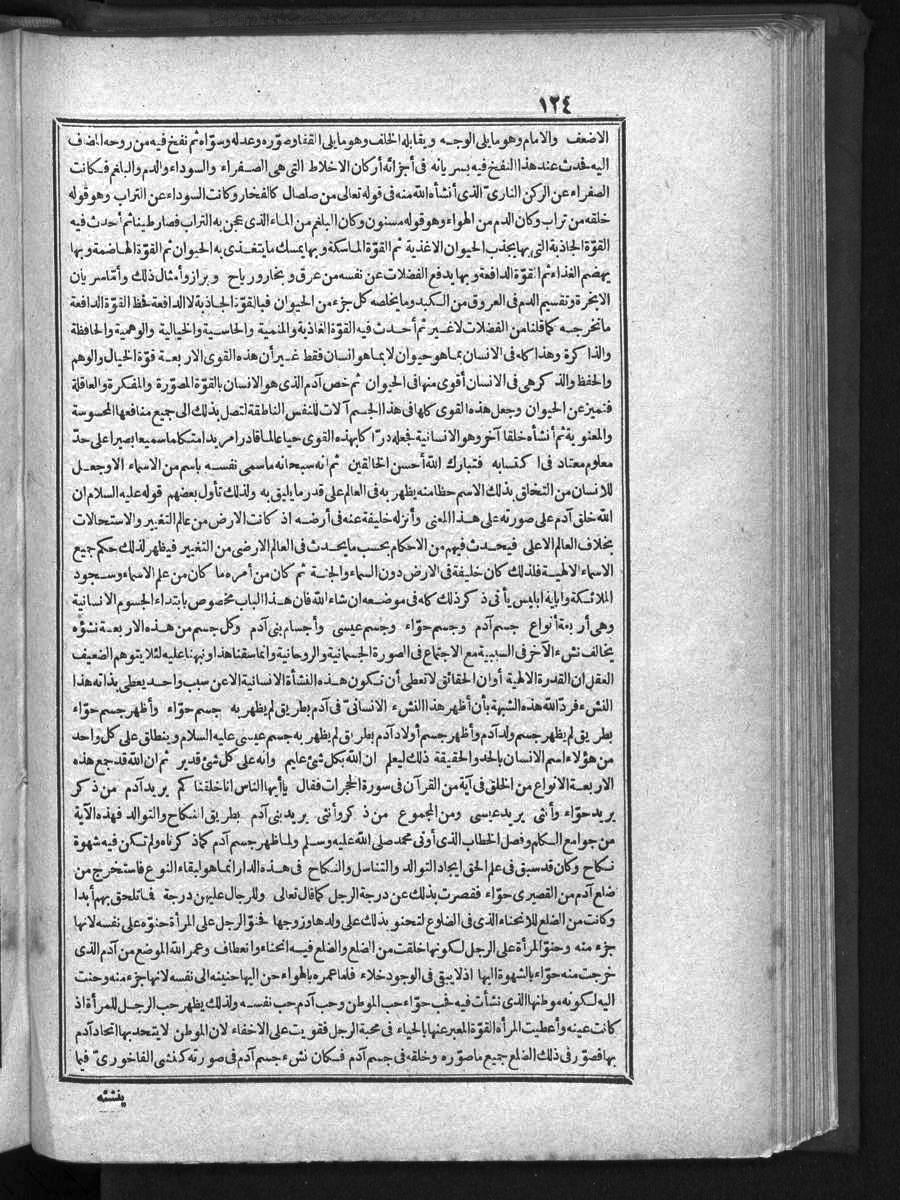 ١٢٤
الاضعف والامام وهو ما يلى الوجه ويقابله الخلف وهو ما يلى القفا وصوّره وعدله وسوّاه ثم نفخ فيه من روحه المضاف
اليه فحدث عند هذا النفخ فيه بسريانه فى أجزائه أركان الاخلاط التى هى الصفراء والسوداء والدم والبلغم فكانت
الصفراء عن الركن النارىّ الذى أنشأه الله منه فى قوله تعالى من صلصال كالفخار وكانت السوداء عن التراب وهو قوله
خلقه من تراب وكان الدم من الهواء وهو قوله مسنون وكان البلغم من الماء الذى عجن به التراب فصار طينا ثم أحدث فيه
القوّة الجاذبة التى بها يجذب الحيوان الاغذية ثم القوّة الماسكة وبها يمسك ما يتغذى به الحيوان ثم القوّة الهاضمة وبها
يهضم الغذاء ثم القوّة الدافعة وبها يدفع الفضلات عن نفسه من عرق وبخار ورياح وبراز وأمثال ذلك وأمّا سريان
الابخرة وتقسيم الدم فى العروق من الكبد وما يخلصه كل جزء من الحيوان فبالقوّة الجاذبة لا الدافعة فحظ القوّة الدافعة
ما تخرجه كما قلنا من الفضلات لا غير ثم أحدث فيه القوّة الغاذية والمنمية والحاسية والخيالية والوهمية والحافظة
والذاكرة وهذا كله فى الانسان بما هو حيوان لا بما هو انسان فقط غير أن هذه القوى الاربعة قوّة الخيال والوهم
والحفظ والذكر هى فى الانسان أقوى منها فى الحيوان ثم خص آدم الذى هو الانسان بالقوّة المصوّرة والمفكرة والعاقلة
فتميز عن الحيوان وجعل هذه القوى كلها فى هذا الجسم آلات للنفس الناطقة لتصل بذلك الى جميع منافعها المحسوسة
والمعنوية ثم أنشأه خلقا آخر وهو الانسانية فجعله درّاكا بهذه القوى حيا عالما قادرا مريدا متكلما سميعا بصيرا على حدّ
معلوم معتاد فى اكتسابه فتبارك الله أحسن الخالقين ثم انه سبحانه ما سمى نفسه باسم من الاسماء الا وجعل
للانسان من التخلق بذلك الاسم حظا منه يظهر به فى العالم على قدر ما يليق به ولذلك تأول بعضهم قوله عليه السلام ان
الله خلق آدم على صورته على هذا المعنى وأنزله خليفة عنه فى أرضه اذ كانت الارض من عالم التغيير والاستحالات
بخلاف العالم الاعلى فيحدث فيهم من الاحكام بحسب ما يحدث فى العالم الارضى من التغيير فيظهر لذلك حكم جميع
الاسماء الالهية فلذلك كان خليفة فى الارض دون السماء والجنة ثم كان من أمره ما كان من علم الاسماء وسجود
الملائكة واباية ابليس يأتى ذكر ذلك كله فى موضعه ان شاء الله فان هذا الباب مخصوص بابتداء الجسوم الانسانية
وهى أربعة أنواع جسم آدم وجسم حوّاء وجسم عيسى وأجسام بنى آدم وكل جسم من هذه الاربعة نشؤه
يخالف نشء الآخر فى السببية مع الاجتماع فى الصورة الجسمانية والروحانية وانما سقنا هذا ونبهنا عليه لئلا يتوهم الضعيف
العقل ان القدرة الالهية أو ان الحقائق لا تعطى أن تكون هذه النشأة الانسانية الا عن سبب واحد يعطى بذاته هذا
النشء فردّ الله هذه الشبهة بأن أظهر هذا النشء الانسانىّ فى آدم بطريق لم يظهر به جسم حوّاء وأظهر جسم حوّاء
بطريق لم يظهر جسم ولد آدم وأظهر جسم أولاد آدم بطريق لم يظهر به جسم عيسى عليه السلام وينطلق على كل واحد
من هؤلاء اسم الانسان بالحد والحقيقة ذلك ليعلم ان الله بكل شئ عليم وانه على كل شئ قدير ثم ان الله قد جمع هذه
الاربعة الانواع من الخلق فى آية من القرآن فى سورة الحجرات فقال يا أيها الناس انا خلقناكم يريد آدم من ذكر
يريد حوّاء وأنثى يريد عيسى ومن المجموع من ذكر وأنثى يريد بنى آدم بطريق النكاح والتوالد فهذه الآية
من جوامع الكلم وفصل الخطاب الذى أوتى محمد صلى الله عليه وسلم ولما ظهر جسم آدم كما ذكرناه ولم تكن فيه شهوة
نكاح وكان قد سبق فى علم الحق ايجاد التوالد والتناسل والنكاح فى هذه الدار انما هو لبقاء النوع فاستخرج من
ضلع آدم من القصيرى حوّاء فقصرت بذلك عن درجة الرجل كما قال تعالى وللرجال عليهن درجة فما تلحق بهم أبدا
وكانت من الضلع للانحناء الذى فى الضلوع لتحنو بذلك على ولدها وزوجها فحنوّ الرجل على المرأة حنوّه على نفسه لانها
جزء منه وحنوّ المرأة على الرجل لكونها خلقت من الضلع والضلع فيه انحناء وانعطاف وعمر الله الموضع من آدم الذى
خرجت منه حوّاء بالشهوة اليها اذ لا يبقى فى الوجود خلاء فلما عمره بالهواء حن اليها حنينه الى نفسه لانها جزء منه وحنت
اليه لكونه موطنها الذى نشأت فيه فحب حوّاء حب الموطن وحب آدم حب نفسه ولذلك يظهر حب الرجل للمرأة اذ
كانت عينه وأعطيت المرأة القوّة المعبر عنها بالحياء فى محبة الرجل فقويت على الاخفاء لان الموطن لا يتحد بها اتحاد آدم
بها فصوّر فى ذلك الضلع جميع ما صوّره وخلقه فى جسم آدم فكان نشء جسم آدم فى صورته كنشئ الفاخورىّ فيما
ينشئه